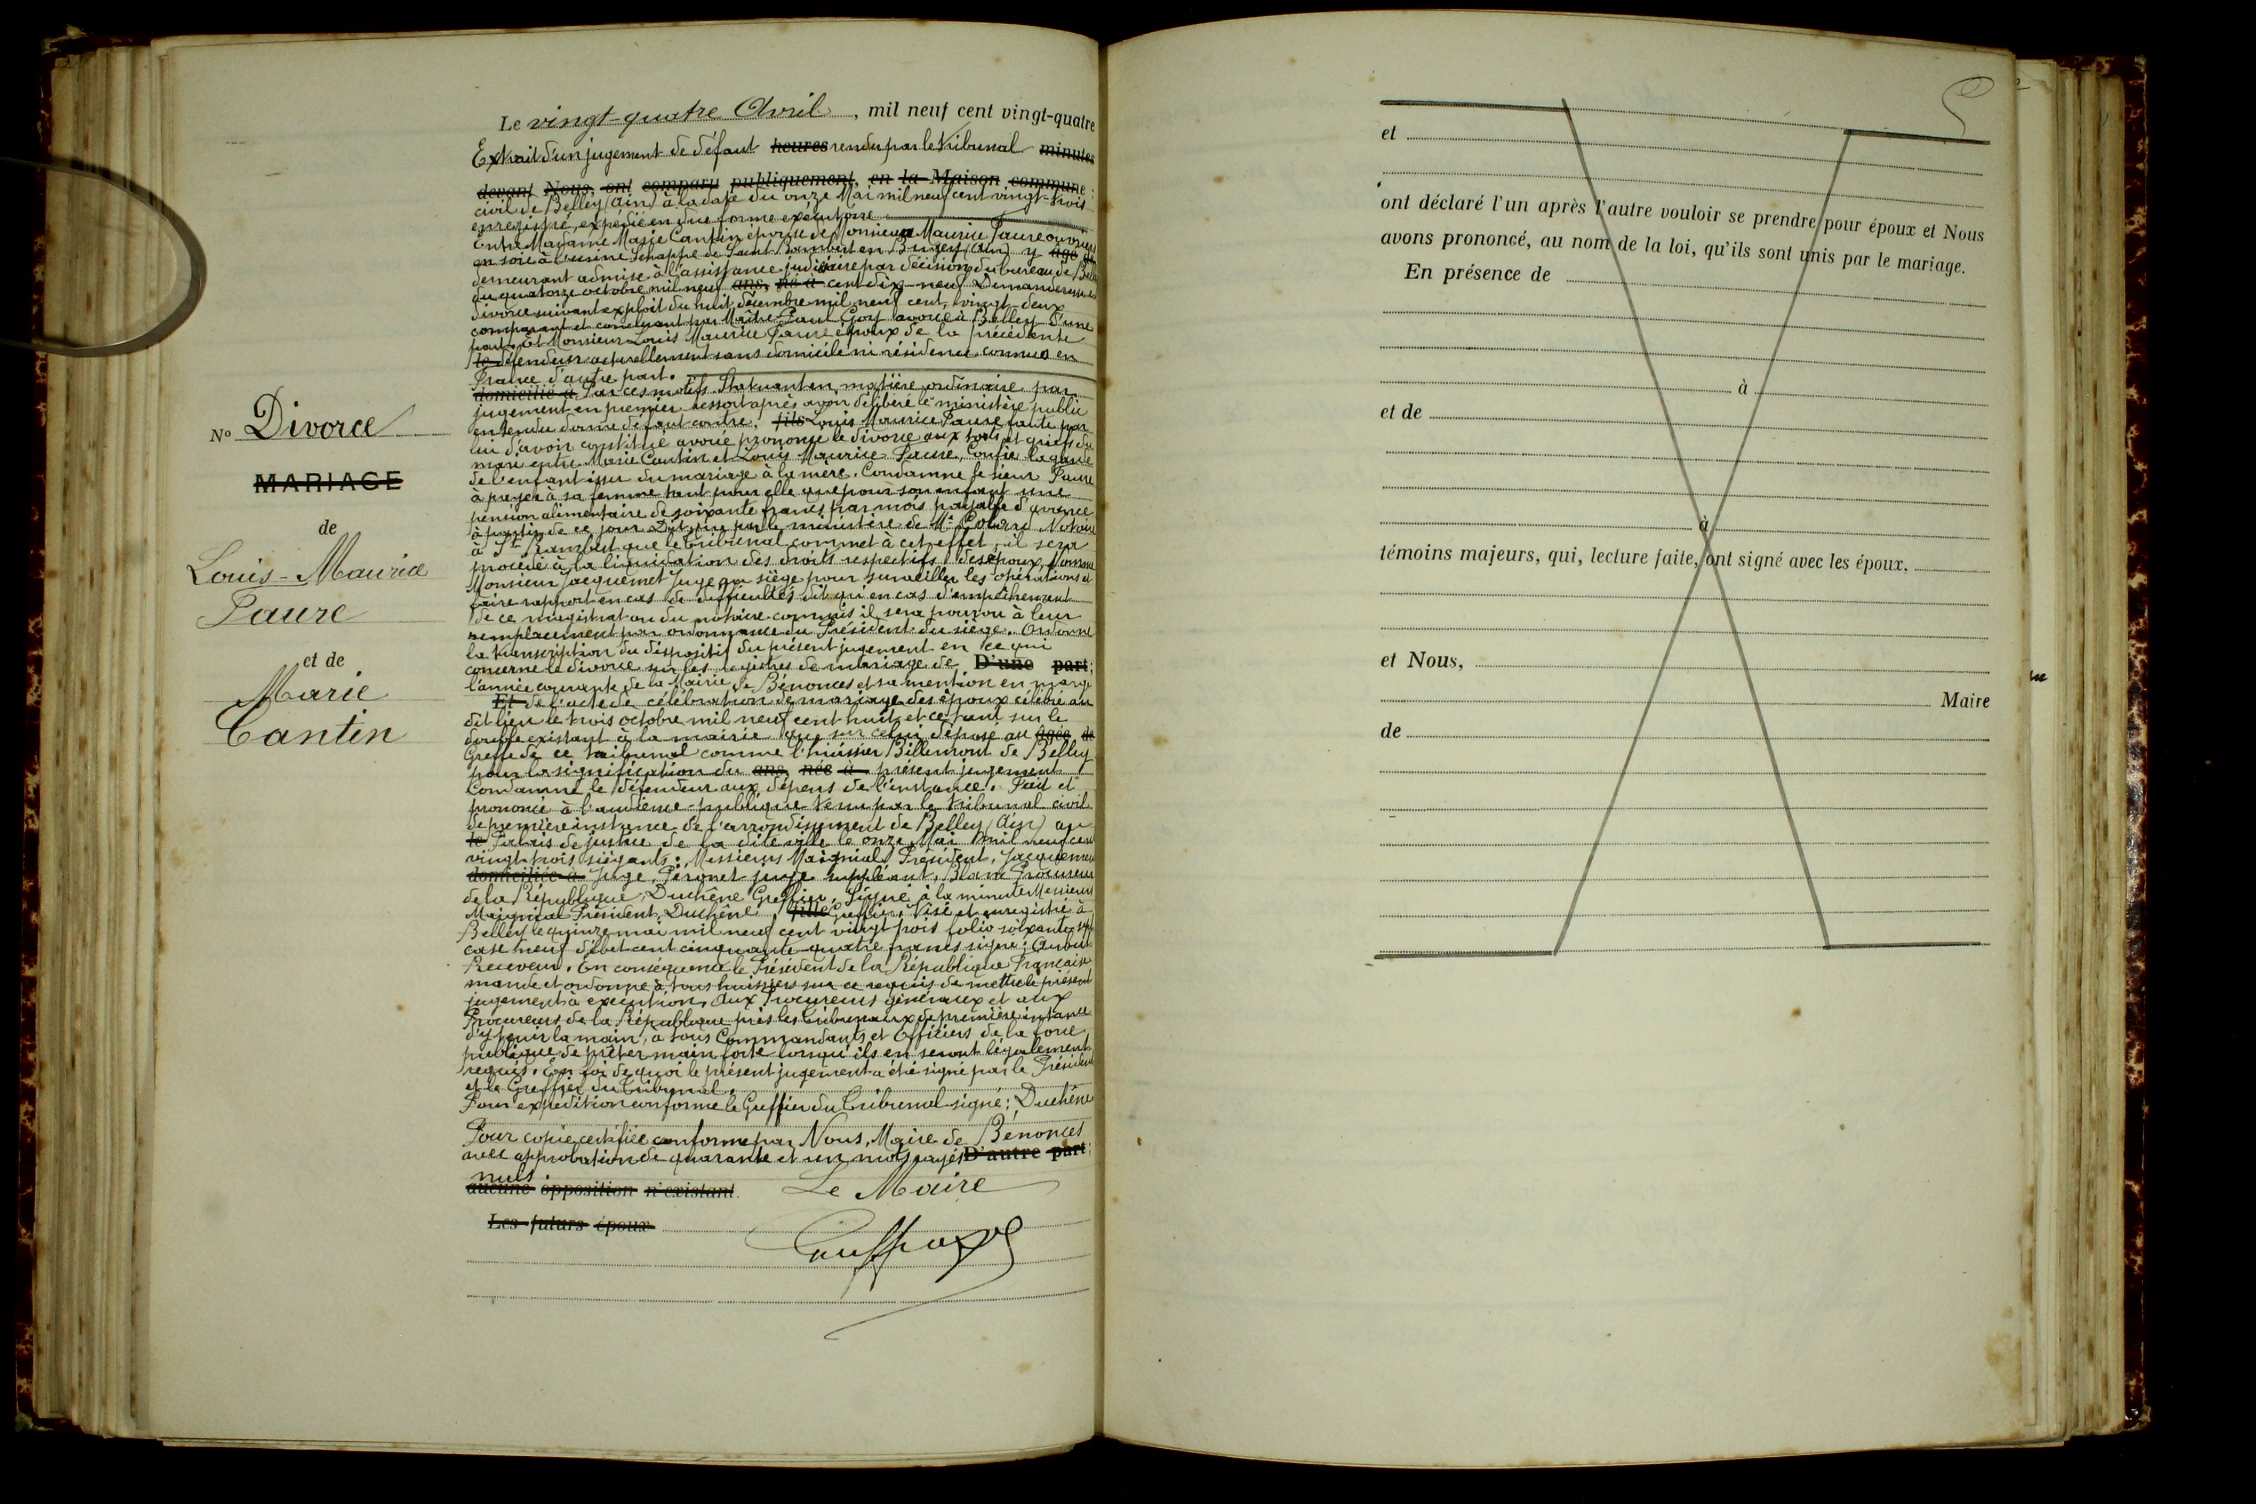 Le vingt-quatre Avril, mil neuf cent vingt-quatre
Extrait d'un jugement de défaut heures rendu par le tribunal minutes
devant Nous, ont comparu publiquement, en la Maison commune :
civil de Belley (Ain) à la date du onze Mai mil neuf cent vingt-trois
enregistré, expédié en due forme exécutoire
Entre Madame Marie Cantin épouse de Monsieur Maurice Faure ouvrière
en soie à l'usine Schappe de Saint Rambert en Bugey (Ain) y âgé de
demeurant admise à l'assistance judiciaire par décision du bureau de Belley
du quatorze octobre mil neuf ans, né à cent dix-neuf Demanderesse en
divorce suivant exploit du huit décembre mil neuf cent vingt-deux
comparant et concluant par Maître Paul Goy avoué à Belley D'une
part. Et Monsieur Louis Maurice Faure époux de la précédente
le défendeur actuellement sans domicile ni résidence connus en
France d'autre part.
domicilié à Par ces motifs Statuant en matière ordinaire par
jugement en premier ressort après avoir délibéré le ministère public
entendu donne défaut contre fils Louis Maurice Faure faute par
lui d'avoir constitué avoué prononce le divorce aux torts et griefs du
mari entre Marie Cantin et Louis Maurice Faure, Confie la garde
de l'enfant issu du mariage à la mère. Condamne le sieur Faure
à payer à sa femme tant pour elle que pour son enfant une
pension alimentaire de soixante francs par mois payable d'avance
à partir de ce jour Dit que par le ministère de Me Notaire
à St Rambert que le tribunal commet à cet effet, il sera
procédé à la liquidation des droits respectifs des époux, Nomme
Monsieur Jacquemet Juge au siège pour surveiller les opérations et
faire rapport en cas de difficultés dit qu'en cas d'empêchement
de ce magistrat ou du notaire commis il sera pourvu à leur
remplacement par ordonnance du Président du siège. Ordonne
la transcription du dispositif du présent jugement en ce qui
concerne le divorce sur les registres de mariage de D'une part;
l'année courante de la Mairie de Bénonces et sa mention en marge
Et de l'acte de célébration de mariage des époux célébré au
dit lieu le trois octobre mil neuf cent huit et ce tant sur le
double existant à la mairie que sur celui déposé au âgée de
Greffe de ce tribunal comme l'huissier Billemont de Belley
pour la signification du ans, née à présent jugement
Condamne le défendeur aux dépens de l'instance. Fait et
prononcé à l'audience publique tenu par le tribunal civil
de première instance de l'arrondissement de Belley (Ain) au
le Palais de justice de la dite ville le onze Mai mil neuf cent
vingt trois siégants: Messieurs Maignial Président, Jacquemet
domiciliée à Juge, Péronet juge suppléant, Blanc Procureur
de la République, Duchêne Greffier. Signé à la minute Messieurs
Maignial Président Duchêne, fille Greffier. Visé et enregistré à
Belley le quinze mai mil neuf cent vingt trois folio soixante sept
case neuf débet cent cinquante quatre francs signé:
Receveur. En conséquence le Président de la République Française
mande et ordonne à tous huissiers sur ce requis de mettre le présent
jugement à exécution, Aux Procureurs généraux et aux
Procureurs de la République près les tribunaux de première instance
d'y tenir la main, à tous Commandants et Officiers de la force
publique de prêter main forte lorsqu'ils en seront légalement
requis. En foi de quoi le présent jugement a été signé par le Président
et le Greffier du tribunal.
Pour expédition conforme le Greffier du tribunal signé: Duchêne
Pour copie certifiée conforme par Nous, Maire de Bénonces
avec approbation de quarante et un mots rayés D'autre part;
nuls.
aucune opposition n'existant. Le Maire
Les futurs époux
No Divorce
MARIAGE
de
Louis-Maurice
Faure
et de
Marie
Cantin
et
ont déclaré l'un après l'autre vouloir se prendre pour époux et Nous
avons prononcé, au nom de la loi, qu'ils sont unis par le mariage.
En présence de
à
et de
à
témoins majeurs, qui, lecture faite, ont signé avec les époux.
et Nous,
Maire
de